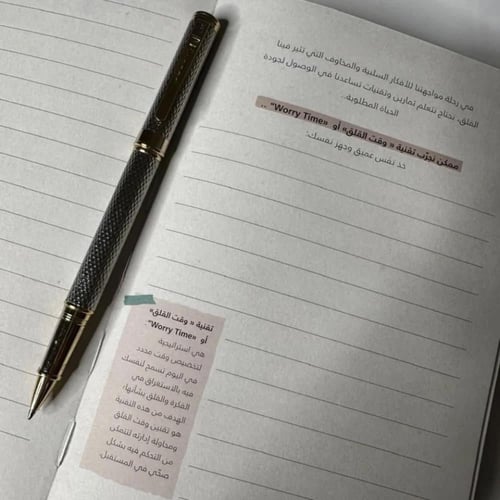 في رحلة مواجهتنا للأفكار السلبية والمخاوف التي تثير فينا
القلق، نحتاج نتعلم تمارين وتقنيات تساعدنا في الوصول لجودة
الحياة المطلوبة..
ممكن نجرّب تقنية « وقت القلق» أو «Worry Time" ..
خذ نفس عميق وجهز نفسك:
تقنية « وقت القلق»
أو «Worry Time"
هي استراتيجية
لتخصيص وقت محدد
في اليوم تسمح لنفسك
فيه بالاستغراق في
الفكرة والقلق بشأنها؛
الهدف من هذه التقنية
هو تقنين وقت القلق
ومحاولة إدارته لتتمكن
من التحكم فيه بشكل
صحّي في المستقبل.